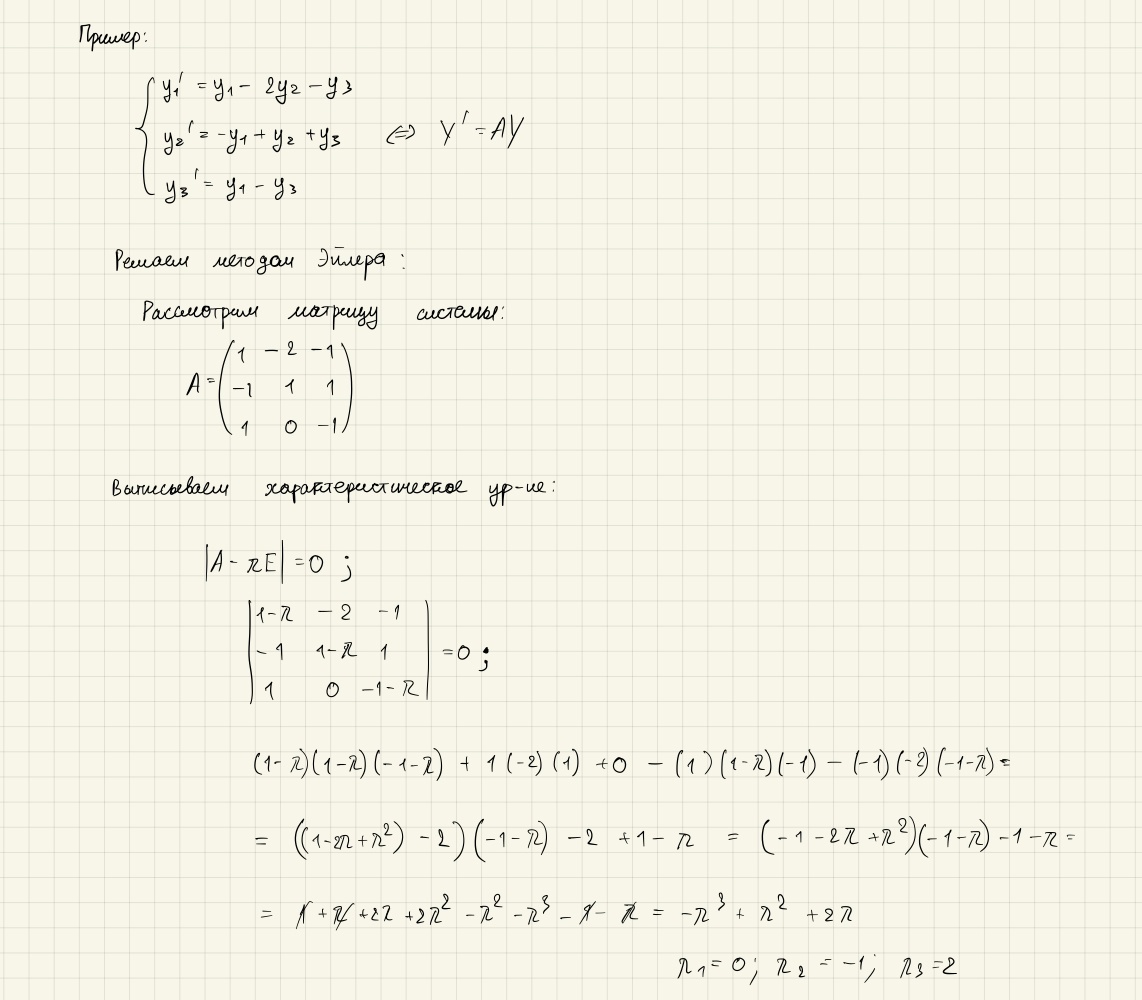 Пример:
y₁' = y₁ - 2y₂ - y₃
y₂' = -y₁ + y₂ + y₃ ⇔ Y' = AY
y₃' = y₁ - y₃
Решаем методом Эйлера:
Рассмотрим матрицу системы:
1 -2 -1
A = -1 1 1
1 0 -1
Выписываем характеристическое ур-ие:
|A - λE| = 0 ;
1-λ -2 -1
-1 1-λ 1 = 0 ;
1 0 -1-λ
(1-λ)(1-λ)(-1-λ) + 1(-2)(1) + 0 - (1)(1-λ)(-1) - (-1)(-2)(-1-λ) =
= ((1-2λ+λ²) - 2)(-1-λ) - 2 + 1 - λ = (-1 - 2λ + λ²)(-1-λ) - 1 - λ =
= 1 + λ + 2λ + 2λ² - λ² - λ³ - 1 - λ = -λ³ + λ² + 2λ
λ₁ = 0; λ₂ = -1; λ₃ = 2